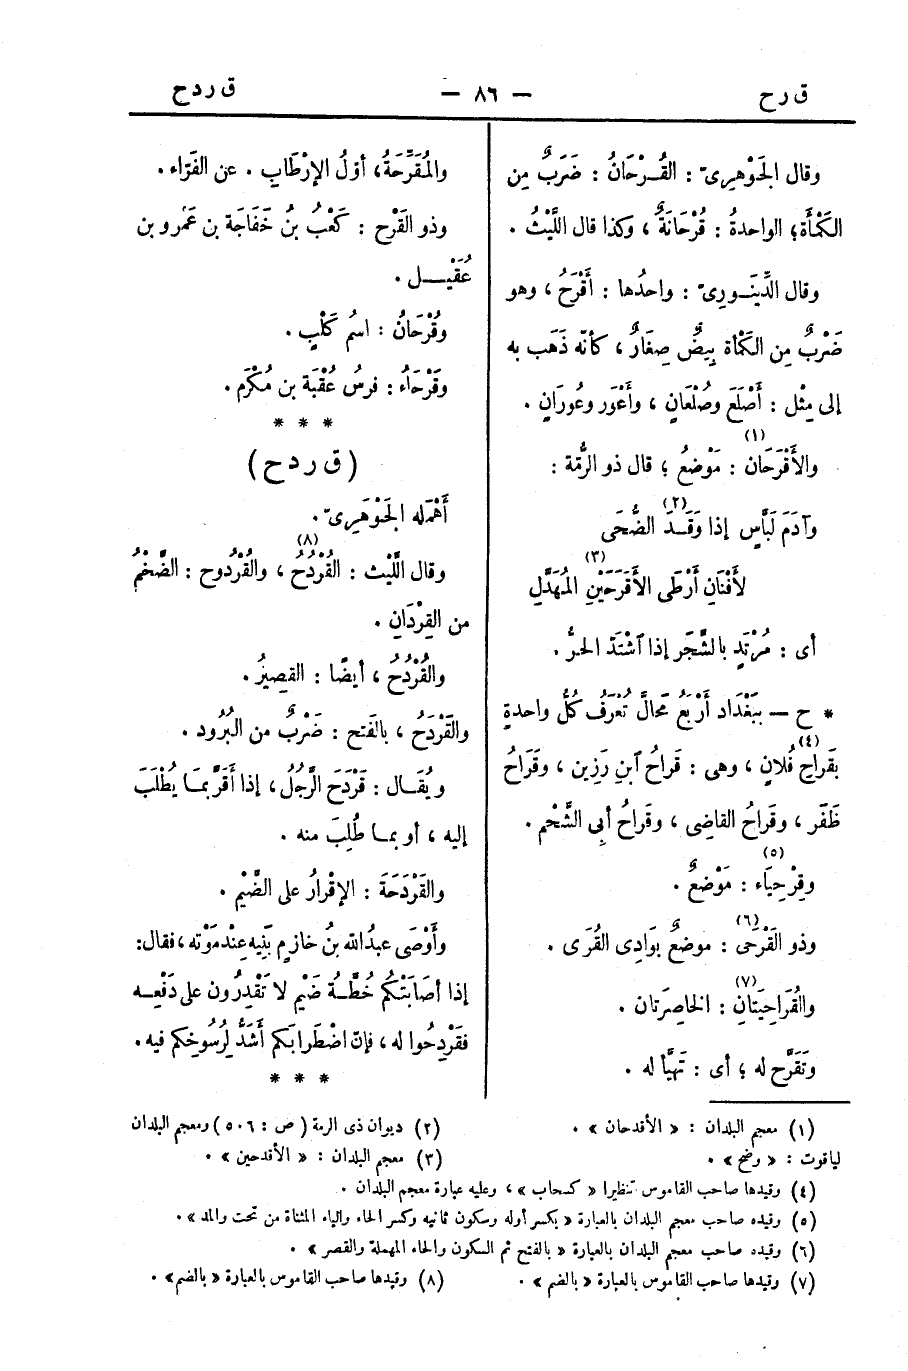 ق ر ح — ٨٦ — ق ر د ح
وقال الجَوْهرىّ : القُرْحَانُ : ضَرَبٌ مِن
الكَمْأَة؛ الواحدةُ : قُرْحَانَةٌ ، وكذا قال اللَّيْثُ .
وقال الدِّينَوِرىّ : واحدُها : أَقْرَحُ ، وهو
ضَرْبٌ مِن الكَمْأة بِيضٌ صِغَارٌ ، كأنّه ذَهَب به
إلى مِثْل : أَصْلَعَ وصُلْعَانٍ ، وأَعْوَر وعُورَانٍ .
والأَقْرَحَان (١) : مَوْضعٌ ؛ قال ذو الرُّمّة :
وآدَمَ لَبَّاسٍ إذا وَقَدَ (٢) الضُّحَى
لأَفْنَانِ أَرْطَى الأَقْرَحَيْنِ (٣) المُهَدَّلِ
أى : مُرْتَدٍ بالشَّجَر إذا ٱشْتَدّ الحرُّ .
* ح — ببَغْدَاد أَرْبَعُ مَحالَّ تُعْرَفُ كُلُّ واحدةٍ
بقَراحِ (٤) فُلانٍ ، وهى : قَراحُ ٱبنِ رَزِين ، وقَرَاحُ
ظَفَر ، وقَراحُ القاضِى ، وقَراحُ أبِى الشَّحْم .
وقِرْحِيَاء (٥) : مَوْضعٌ .
وذو القَرْحَى (٦) : موضعٌ بوَادِى القُرَى .
والقُرَاحِيَتَانِ (٧) : الخاصِرَتان .
وتَقَرَّح له ؛ أى : تَهيَّأ له .
والمُقَرِّحَةُ، أوّلُ الإرْطَابِ . عن الفَرّاء .
وذو القَرْح : كَعْبُ بنُ خَفَاجَة بن عَمْرو بن
عُقَيْل .
وقُرْحَانُ : اسمُ كَلْبٍ .
وقَرْحَاءُ : فرسُ عُقْبَة بن مُكْرَم .
* * *
( ق ر د ح )
أَهْمَله الجَوْهَرِىّ .
وقال اللَّيث : القُرْدُحُ (٨) ، والقُرْدُوح : الضَّخْمُ
من القِرْدَانِ .
والقُرْدُحُ ، أيضًا : القصِيرُ .
والقَرْدَحُ ، بالفَتح : ضَرْبٌ من البُرُود .
ويُقَال : قَرْدَحَ الرَّجُلُ ، إذا أَقَرَّ بمَا يُطْلَبَ
إليه ، أو بمَا طُلِبَ منه .
والقَرْدَحَة : الإقْرارُ على الضَّيْم .
وأَوْصَى عبدُ الله بنُ خازمٍ بَنِيه عِنْد مَوْته ، فقال:
إذا أصَابَتْكُم خُطَّةُ ضَيْمٍ لا تَقْدِرُون على دَفْعِه
فقَرْدِحُوا له ، فإنّ اضْطَرابَكم أَشَدُّ لرُسُوخِكم فيه .
* * *
(١) معجم البلدان : « الأقدحان » . (٢) ديوان ذى الرمة ( ص : ٥٠٦ ) ومعجم البلدان
لياقوت : « وضح » . (٣) معجم البلدان : « الأقدحين » .
(٤) وقيدها صاحب القاموس تنظيرا « كسحاب » ، وعليه عبارة معجم البلدان .
(٥) وقيده صاحب معجم البلدان بالعبارة « بكسر أوله وسكون ثانيه وكسر الحاء والياء المثناة من تحت والمد » .
(٦) وقيده صاحب معجم البلدان بالعبارة « بالفتح ثم السكون والحاء المهملة والقصر » .
(٧) وقيدها صاحب القاموس بالعبارة « بالضم » . (٨) وقيدها صاحب القاموس بالعبارة « بالضم » .